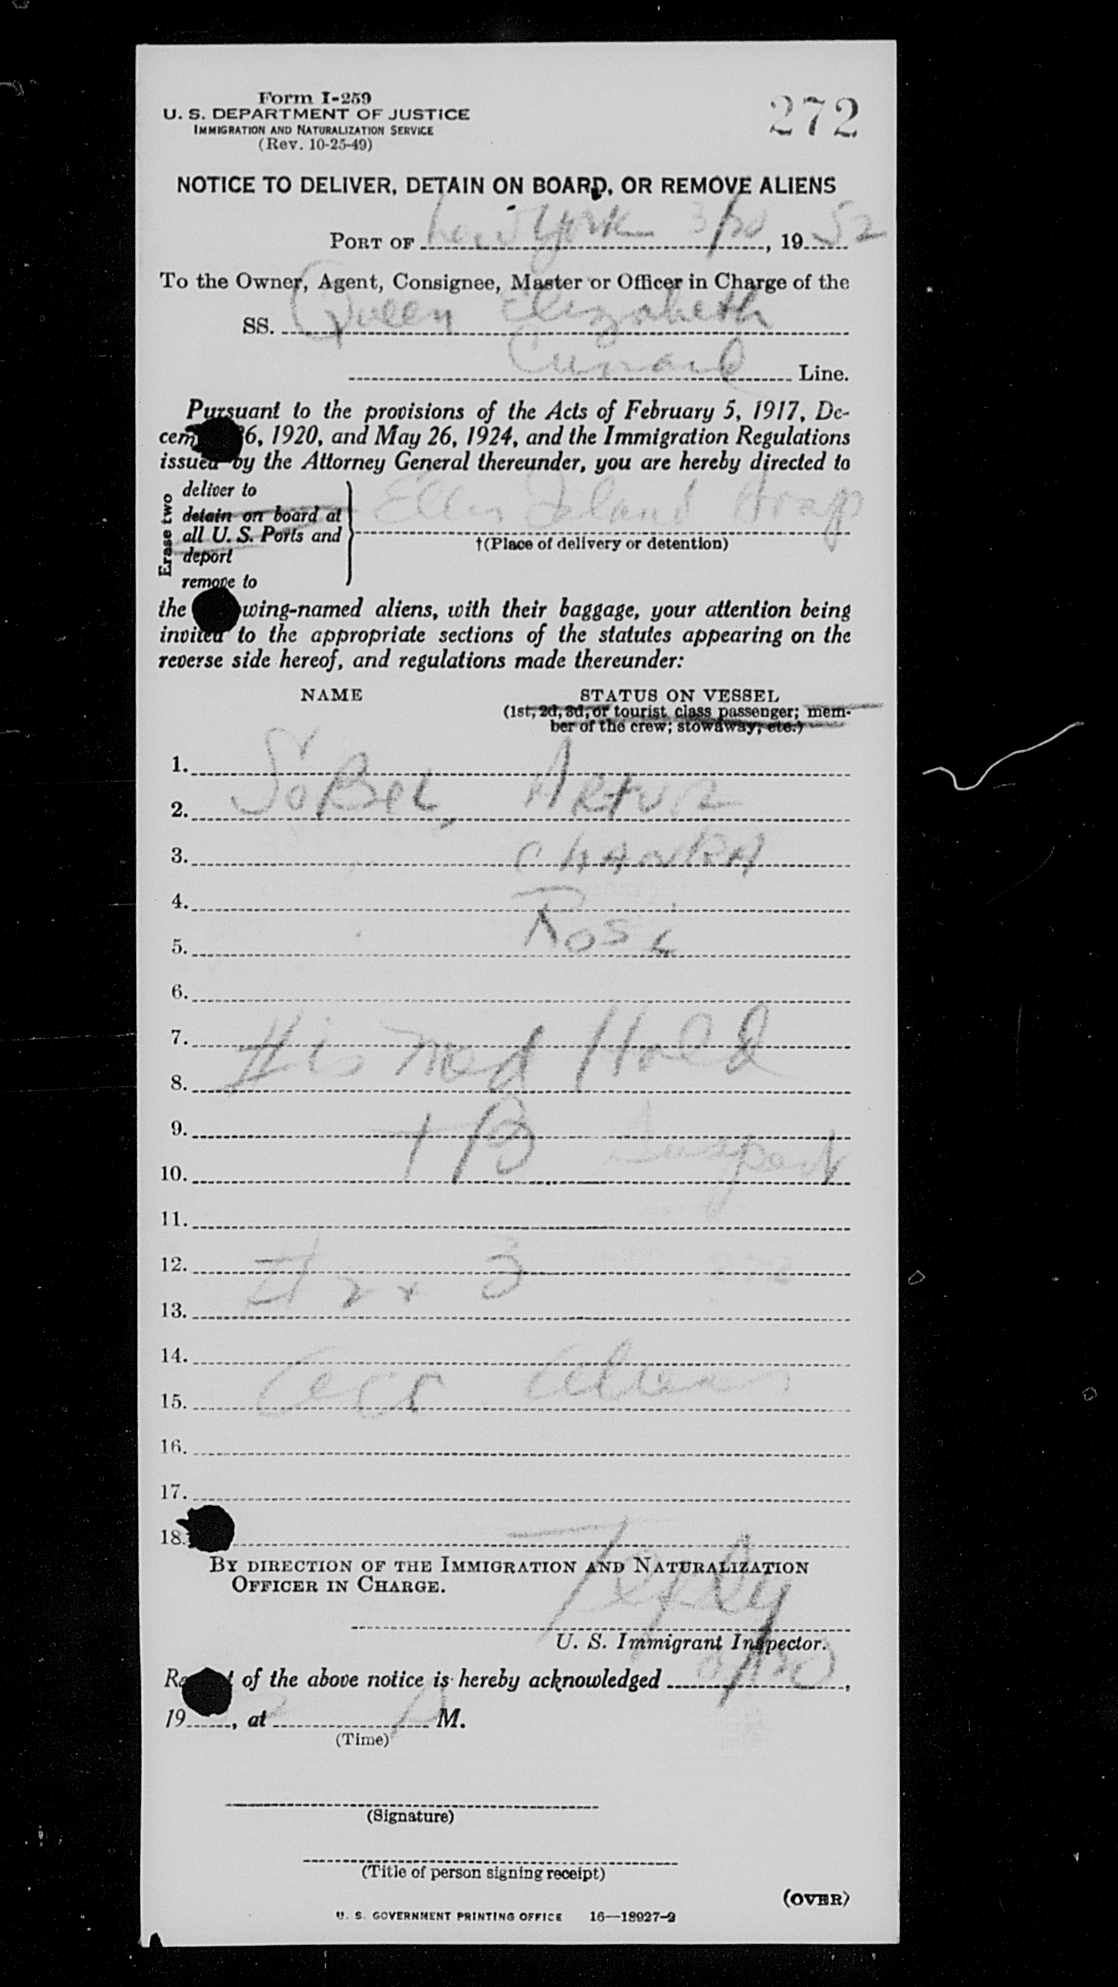 Form I-259
U. S. DEPARTMENT OF JUSTICE
IMMIGRATION AND NATURALIZATION SERVICE
(Rev. 10-25-49)
272
NOTICE TO DELIVER, DETAIN ON BOARD, OR REMOVE ALIENS
PORT OF New York 3/20, 1952
To the Owner, Agent, Consignee, Master or Officer in Charge of the
SS. Queen Elizabeth
Cunard Line.
Pursuant to the provisions of the Acts of February 5, 1917, De-
cem 26, 1920, and May 26, 1924, and the Immigration Regulations
issued by the Attorney General thereunder, you are hereby directed to
Erase two
deliver to
detain on board at
all U. S. Ports and
deport
remove to
Ellis Island Hosp
†(Place of delivery or detention)
the wing-named aliens, with their baggage, your attention being
invited to the appropriate sections of the statutes appearing on the
reverse side hereof, and regulations made thereunder:
NAME STATUS ON VESSEL
(1st, 2d, 3d, or tourist class passenger; mem-
ber of the crew; stowaway; etc.)
1.
2. Sobel, Artur
3. Chanka
4.
5. Rosi
6.
7.
8. #1 is Med Hold
9.
10. TB Suspect
11.
12.
13. #2 + 3
14.
15. Acc Aliens
16.
17.
18.
BY DIRECTION OF THE IMMIGRATION AND NATURALIZATION
OFFICER IN CHARGE.
U. S. Immigrant Inspector.
of the above notice is hereby acknowledged 3/20,
19, at A M.
(Time)
(Signature)
(Title of person signing receipt)
(OVER)
U. S. GOVERNMENT PRINTING OFFICE 16—18927-2